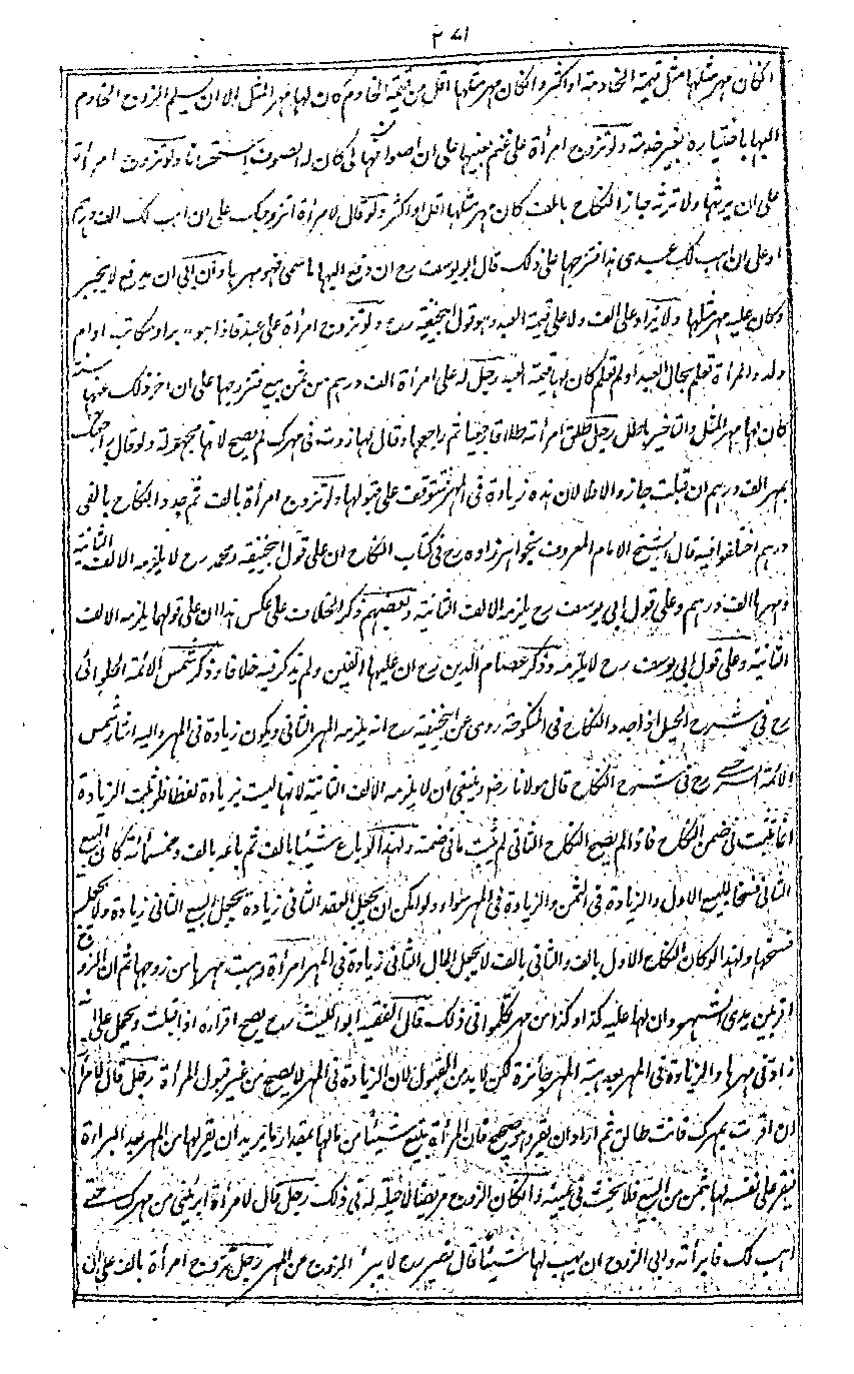 ان كان مهر مثلها مثل قيمة الخادمة او اكثر وان كان مهر مثلها اقل من قيمة الخادم كان لها مهر المثل الا ان يسلم الزوج الخادم
اليها باختياره بغير خدمة ولو تزوج امرأة على غنم بعينها على ان اصوافها لى كان له الصوف استحسانا ولو تزوج امرأة
على ان يرثها ولا ترثه جاز النكاح بالف كان مهر مثلها اقل او اكثر ولو قال لامرأة اتزوجك على ان اهب لك الف درهم
او على ان اهب لك عبدى هذا فتزوجها على ذلك قال ابو يوسف رح ان دفع اليها ما سمى فهو مهرها وان ابى ان يدفع لا يجبر
وكان عليه مهر مثلها ولا يزاد على الف ولا على قيمة العبد وهو قول ابيحنيفة رح ولو تزوج امرأة على عبد فاذا هو مدبر او مكاتب او ام
ولد والمرأة تعلم بحال العبد او لم تعلم كان لها قيمة العبد رجل له على امرأة الف درهم من ثمن بيع فتزوجها على ان اخر ذلك عنها سنة
كان لها مهر المثل والتأخير باطل رجل طلق امرأته طلاقا رجعيا ثم راجعها وقال لها زدت فى مهرك لم يصح لانها مجهولة ولو قال راجعتك
بمهر الف درهم ان قبلت جاز والا فلا لان هذه زيادة فى المهر فتتوقف على قبولها ولو تزوج امرأة بالف ثم جدد النكاح بالفى
درهم اختلفوا فيه قال الشيخ الامام المعروف بخواهرزاده رح فى كتاب النكاح ان على قول ابيحنيفة ومحمد رح لا يلزمه الالف الثانية
ومهرها الف درهم وعلى قول ابى يوسف رح يلزمه الالف الثانية وبعضهم ذكر الخلاف على عكس هذا ان على قولهما يلزمه الالف
الثانية وعلى قول ابى يوسف رح لا يلزمه وذكر عصام الدين رح ان عليها الفين ولم يذكر فيه خلافا وذكر شمس الائمة الحلوائى
رح فى شرح الحيل اذا جدد النكاح فى المنكوحة روى عن ابيحنيفة رح انه يلزمه المهر الثانى ويكون زيادة فى المهر واليه اشار شمس
الائمة السرخسى رح فى شرح النكاح قال مولانا رض وينبغى ان لا يلزمه الالف الثانية لانها ليست بزيادة لفظا ولو ثبت الزيادة
انما تثبت فى ضمن النكاح فاذا لم يصح النكاح الثانى لم يثبت ما فى ضمنه ولهذا لو باع شيئا بالف ثم باعه بالف وخمسمائة كان البيع
الثانى فسخا للبيع الاول والزيادة فى الثمن والزيادة فى المهر سواء ولو امكن ان يجعل العقد الثانى زيادة يجعل البيع الثانى زيادة ولا يجعل
فسخا ولهذا لو كان النكاح الاول بالف والثانى بالف لا يجعل المال الثانى زيادة فى المهر امرأة وهبت مهرها من زوجها ثم ان الزوج
اقر بين يدى الشهود ان لها عليه كذا وكذا من مهر تكلموا فى ذلك قال الفقيه ابو الليث رح يصح اقراره اذا قبلت ويحمل على انه
زاد فى مهرها والزيادة فى المهر بعد هبة المهر جائزة لكن لا بد من القبول لان الزيادة فى المهر لا يصح من غير قبول المرأة رجل قال لامرأته
ان اقررت بمهرك فانت طالق ثم اراد ان يقر وهو صحيح فان المرأة تبيع شيئا من مالها بمقدار ما يريد ان يقر لها من المهر بعد البراءة
فيقر على نفسه لها بثمن من البيع فلا يحنث فى يمينه وان كان الزوج مريضا لا حيلة له فى ذلك رجل قال لامرأة ابرئينى من مهرك حتى
اهب لك فابرأته وابى الزوج ان يهب لها شيئا قال نصير رح لا يبرأ الزوج عن المهر رجل تزوج امرأة بالف على ان